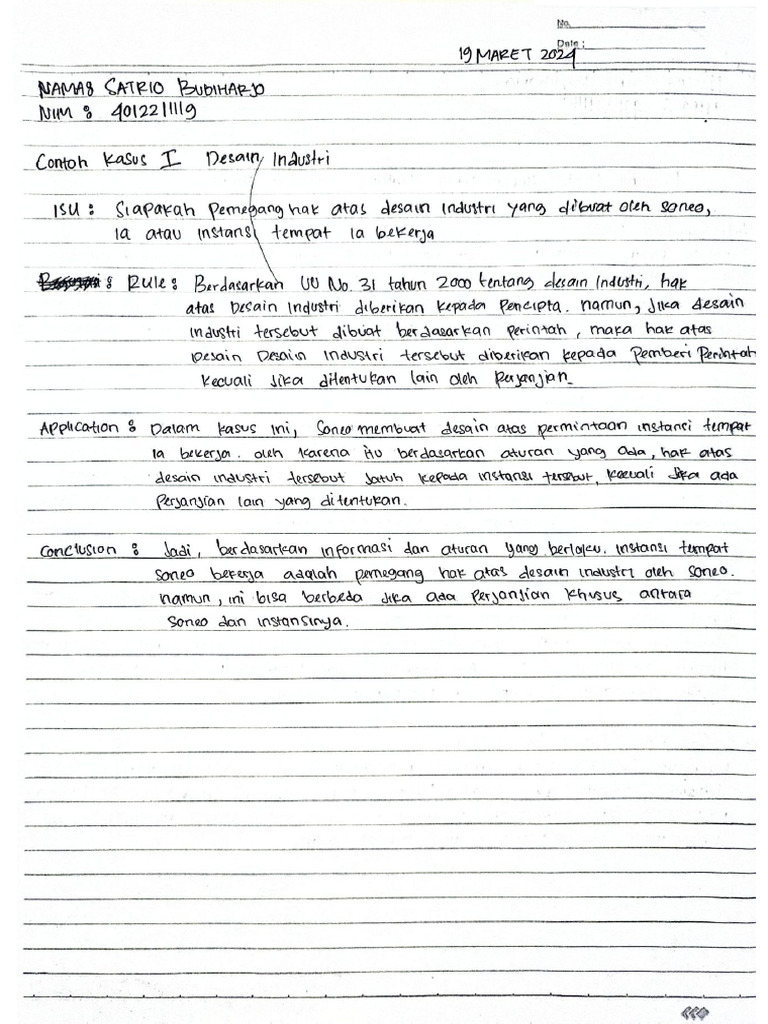 No.
Date :
19 MARET 2024
NAMA : SATRIO BUDIHARJO
NIM : 4012211119
Contoh Kasus I Desain Industri
ISU : Siapakah Pemegang hak atas desain Industri yang dibuat oleh Soneo,
Ia atau instansi tempat Ia bekerja
: RULE : Berdasarkan UU No. 31 tahun 2000 tentang desain Industri, hak
atas Desain Industri diberikan kepada Pencipta. namun, Jika desain
Industri tersebut dibuat berdasarkan perintah, maka hak atas
Desain Desain Industri tersebut diberikan kepada Pemberi Perintah
Kecuali Jika ditentukan lain oleh Perjanjian.
Application : Dalam kasus ini, Soneo membuat desain atas permintaan instansi tempat
Ia bekerja. oleh karena itu berdasarkan aturan yang ada, hak atas
desain industri tersebut Jatuh kepada instansi tersebut, kecuali Jika ada
Perjanjian lain yang ditentukan.
Conclusion : Jadi, berdasarkan informasi dan aturan yang berlaku. instansi tempat
Soneo bekerja adalah pemegang hak atas desain industri oleh soneo.
namun, ini bisa berbeda Jika ada Perjanjian khusus antara
Soneo dan instansinya.